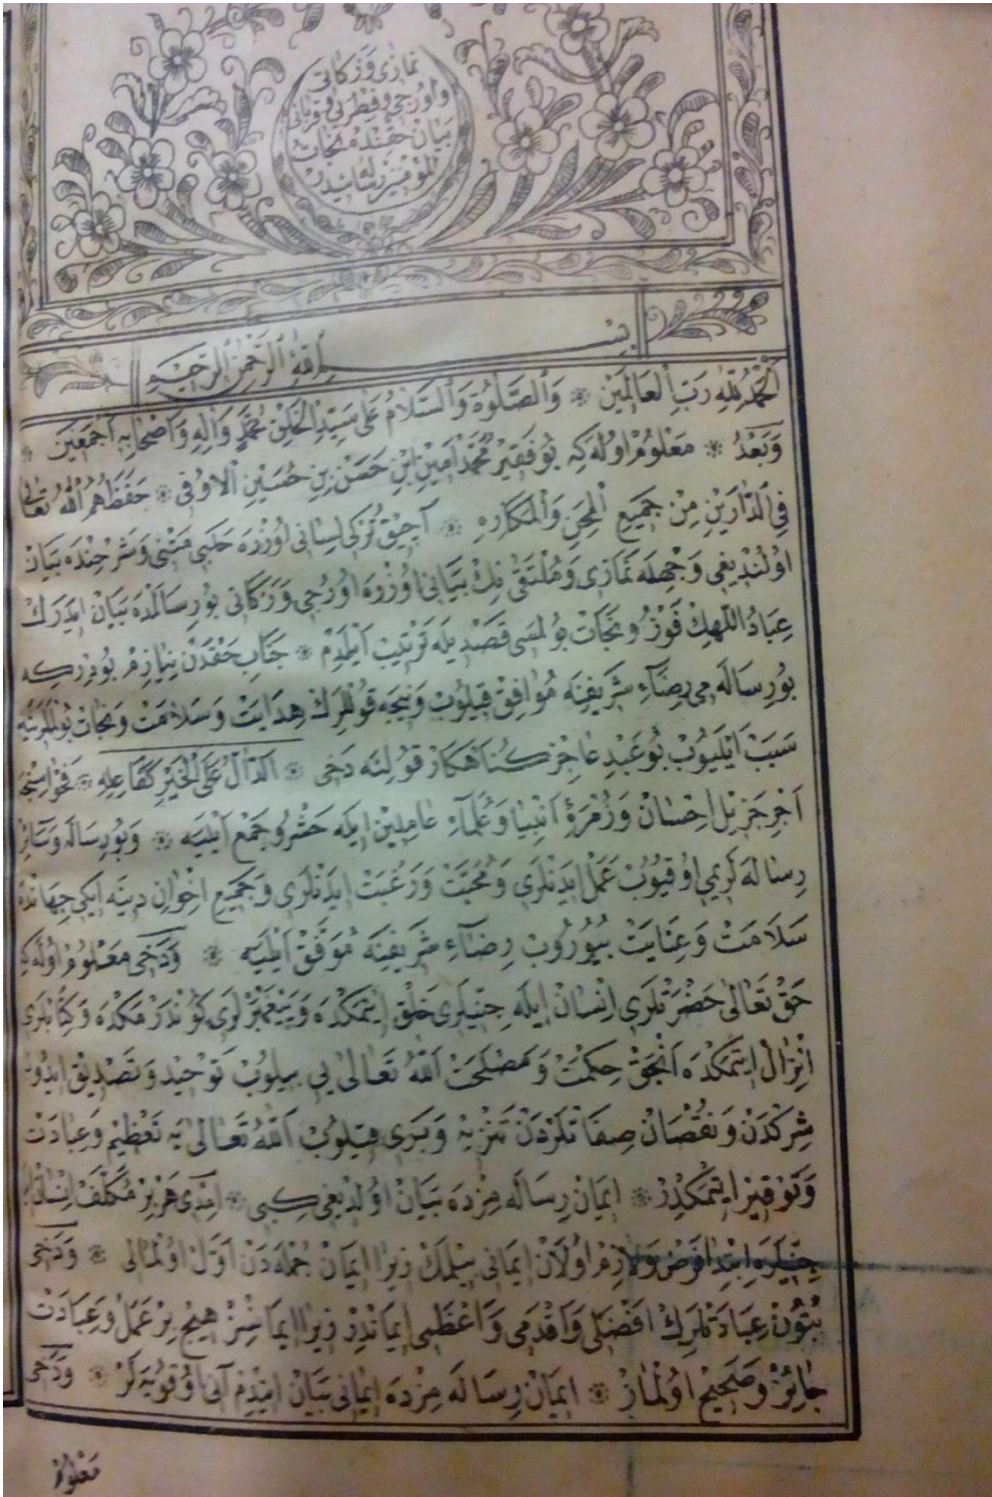 نمازى و زكاتى
و اورجى و فطرى و قربانى
بيان حقنده منجات
للمؤمنين رساله سيدر
بِسْمِ ٱللهِ ٱلرَّحْمٰنِ ٱلرَّحِيمِ
اَلْحَمْدُ لِلّٰهِ رَبِّ الْعَالَمِينَ ❊ وَالصَّلٰوةُ وَالسَّلَامُ عَلٰى سَيِّدِ الْخَلْقِ مُحَمَّدٍ وَاٰلِهِ وَاَصْحَابِهِ اَجْمَعِينَ ❊
وَبَعْدُ ❊ مَعْلُومْ اوُلَه كِه بُو فَقِيرْ مُحَمَّدْ اَمِينِ ابْنِ حَسَنْ بِنِ حُسَيْنِ الْاوُفِى ❊ حَفَظَهُمُ اللهُ تَعَالٰى
فِى الدَّارَيْنِ مِنْ جَمِيعِ الْمِحَنِ وَالْمَكَارِهِ ❊ آچِيقْ تُرْكِى لِسَانِى اُوزْرَه حَلَبِى مَتْنِى وَ شَرْحِنْدَه بَيَانْ
اوُلُنْدِيغِى وَجْهِلَه نَمَازِى وَ مُلْتَقٰى نِكْ بَيَانِى اُوزْرَه اُورُجِى وَ زَكَاتِى بُو رِسَالَدَه بَيَانْ ايدَرَكْ
عِبَادُ اللهِكْ فَوْزُ و نَجَاتْ بُولْمَسِى قَصْدِيلَه تَرْتِيبْ اَيْلَدِمْ ❊ جَنَابِ حَقْدَنْ نِيَازِمْ بُودِرْكِه
بُو رِسَالَه مِى رِضَاءِ شَرِيفِنَه مُوَافِقْ قِيلُوبْ وَ نِيجَه قُولْلَرِكْ هِدَايَتْ وَ سَلَامَتْ وَ نَجَاتْ بُولْمَلَرِينَه
سَبَبْ اَيْلَيُوبْ بُو عَبْدِ عَاجِزْ كُنَاهْكَارْ قُولِنَه دَخِى ❊ اَلدَّالُّ عَلَى الْخَيْرِ كَفَاعِلِهِ ❊ فَحْوَاسِنْجَه
اَجْرِ جَزِيلْ اِحْسَانْ وَ زُمْرَۀِ اَنْبِيَا وَ عُلَمَاءِ عَامِلِينْ ايلَه حَشْرُ و جَمْعْ اَيْلِيَه ❊ وَ بُو رِسَالَه وَ سَائِرْ
رِسَالَه لَرِيمِى اُوقُيُوبْ عَمَلْ ايدَنْلَرِى وَ مُحَبَّتْ وَ رَغْبَتْ ايدَنْلَرِى وَ جَمِيعِ اِخْوَانِ دِينَه ايكِى جِهَانْدَه
سَلَامَتْ وَ عِنَايَتْ بُيُورُوبْ رِضَاءِ شَرِيفِنَه مُوَفَّقْ اَيْلِيَه ❊ وَ دَخِى مَعْلُومْ اوُلَه كِه
حَقْ تَعَالٰى حَضْرَتْلَرِى اِنْسَانْ ايلَه جِنِّيلَرِى خَلْقْ ايتْمَكْدَه وَ پَيْغَمْبَرْلَرِى كُونْدَرْمَكْدَه وَ كِتَابْلَرِى
اِنْزَالْ ايتْمَكْدَه اَنْجَقْ حِكْمَتْ وَ مَصْلَحَتْ اَللهُ تَعَالٰى يِى بِيلُوبْ تَوْحِيدْ وَ تَصْدِيقْ ايدُوبْ
شِرْكْدَنْ وَ نُقْصَانْ صِفَاتْلَرْدَنْ تَنْزِيهْ وَ بَرِى قِيلُوبْ اَللهُ تَعَالٰى يَه تَعْظِيمْ وَ عِبَادَتْ
وَ تَوْقِيرْ ايتْمَكْدِرْ ❊ ايمَانْ رِسَالَه مِزْدَه بَيَانْ اوُلُنْدِيغِى كِبِى ❊ اِمْدِى هَرْ بِرْ مُكَلَّفْ اِنْسَانْ
جِنِّيلَرَه اِبْتِدَا فَرْضْ وَ لَازِمْ اوُلَانْ ايمَانِى بِيلْمَكْ زِيرَا ايمَانْ جُمْلَه دَنْ اَوَّلْ اوُلْمَالِى ❊ وَ دَخِى
بُتُونْ عِبَادَتْلَرِكْ اَفْضَلِى وَ اَقْدَمِى وَ اَعْظَمِى ايمَانْدِرْ زِيرَا ايمَانْسِزْ هِيچْ بِرْ عَمَلُ و عِبَادَتْ
جَائِزْ و صَحِيحْ اوُلْمَازْ ❊ ايمَانْ رِسَالَه مِزْدَه ايمَانِى بَيَانْ ايتْدِمْ آنِى اوُقُويَه لَرْ ❊ وَ دَخِى
مَعْلُومْ